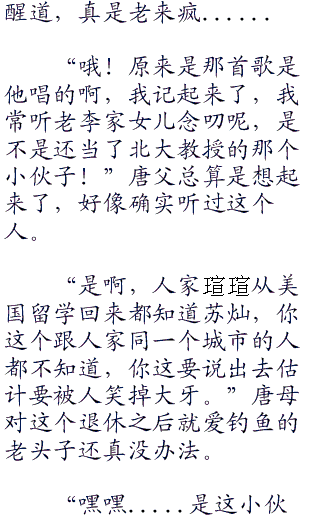 醒道，真是老来疯......
“哦！原来是那首歌是
他唱的啊，我记起来了，我
常听老李家女儿念叨呢，是
不是还当了北大教授的那个
小伙子！”唐父总算是想起
来了，好像确实听过这个
人。
“是啊，人家瑄瑄从美
国留学回来都知道苏灿，你
这个跟人家同一个城市的人
都不知道，你这要说出去估
计要被人笑掉大牙。”唐母
对这个退休之后就爱钓鱼的
老头子还真没办法。
“嘿嘿.....是这小伙